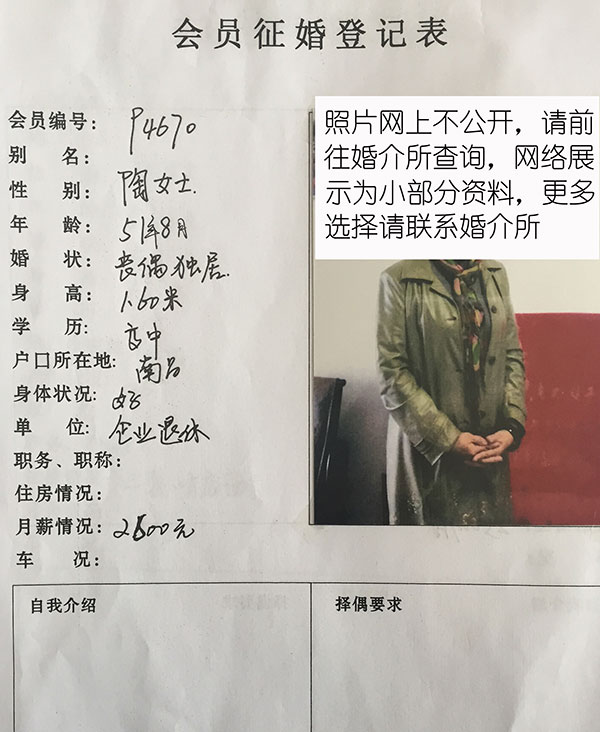 会员征婚登记表
会员编号: P4670
别 名:
性 别: 陶女士.
年 龄: 51年8月
婚 状: 丧偶独居.
身 高: 1.60米
学 历: 高中
户口所在地: 南昌
身体状况: 好
单 位: 企业退休
职务、职称:
住房情况:
月薪情况: 2600元
车 况:
照片网上不公开，请前
往婚介所查询，网络展
示为小部分资料，更多
选择请联系婚介所
自我介绍
择偶要求